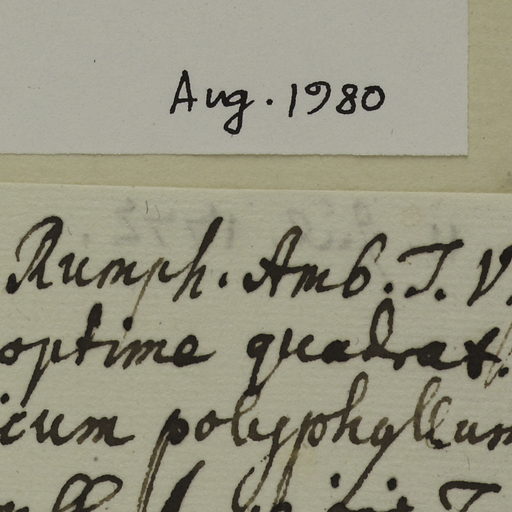 Aug. 1980
Rumph. Amb. T. V.
optime quadrat.
icum polyphyllum